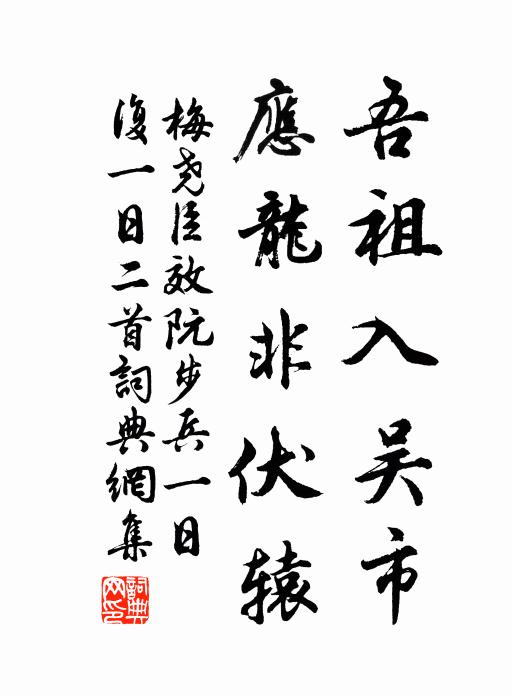 吾祖入吴市
應龍非伏辕
梅尧臣效阮步兵一日
復一日二首詞典網集
詞典网印